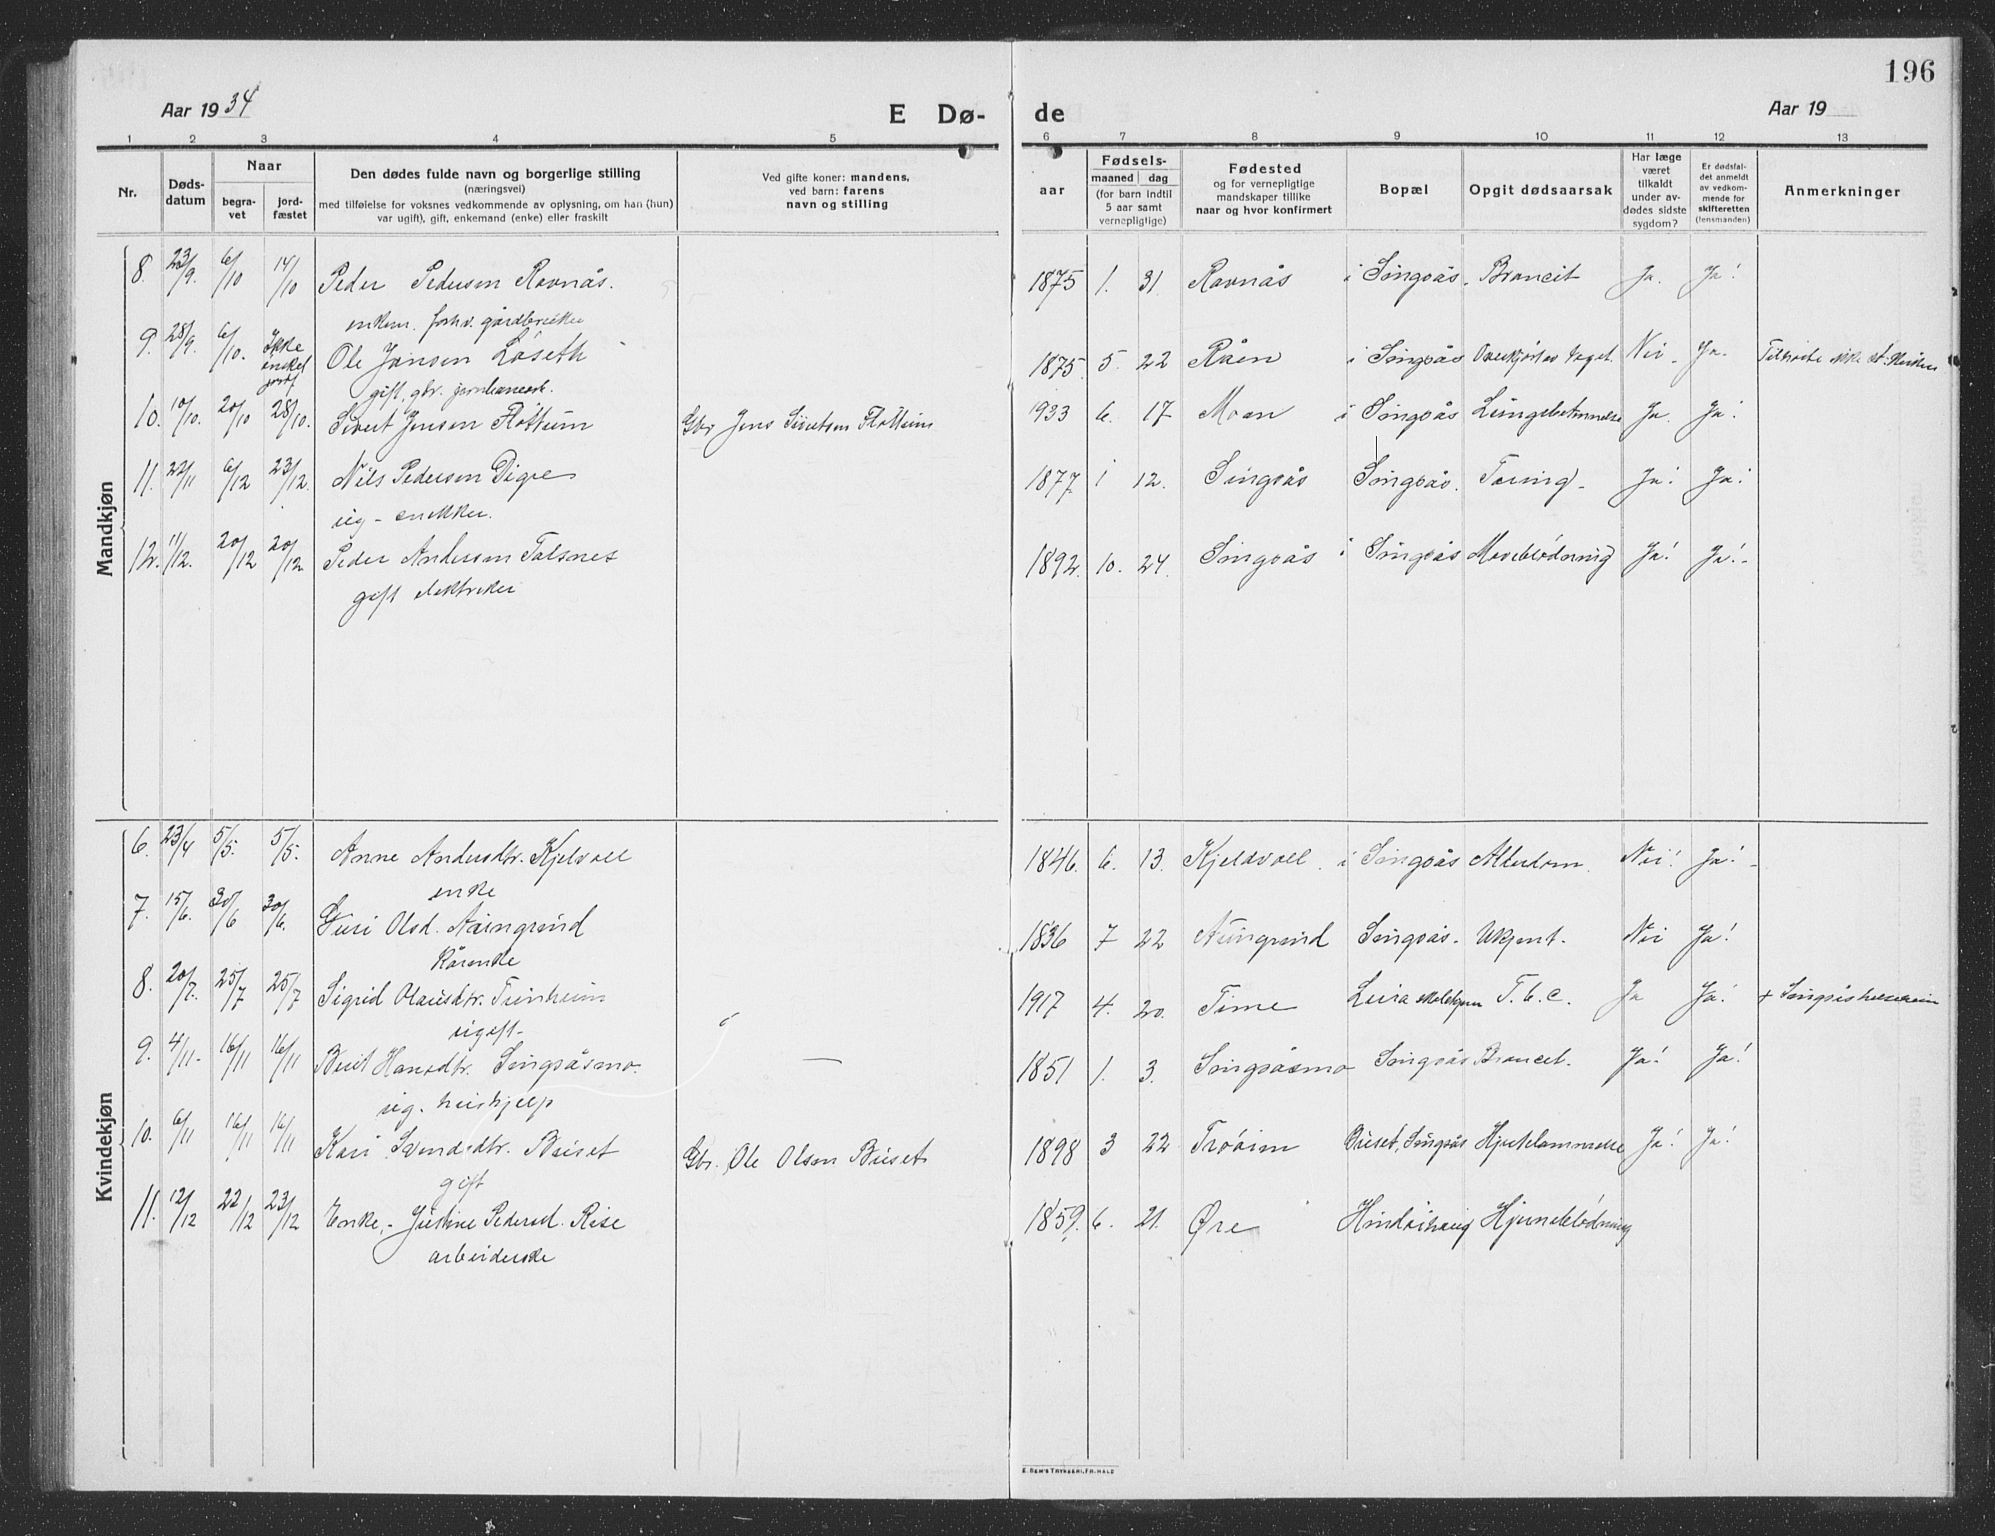 196
Aar 1934
E Dø- de
Aar 19
1 2 3 4 5 6 7 8 9 10 11 12 13
Nr.
Døds-
datum
Naar
begra-
vet
jord-
fæstet
Den dødes fulde navn og borgerlige stilling
(næringsvei)
med tilføielse for voksnes vedkommende av oplysning, om han (hun)
var ugift), gift, enkemand (enke) eller fraskilt
Ved gifte koner: mandens,
ved barn: farens
navn og stilling
aar
Fødsels-
maaned dag
(for barn indtil
5 aar samt
vernepligtige)
Fødested
og for vernepligtige
mandskaper tillike
naar og hvor konfirmert
Bopæl
Opgit dødsaarsak
Har læge
været
tilkaldt
under av-
dødes sidste
sygdom?
Er dødsfal-
det anmeldt
av vedkom-
mende for
skifteretten
(lensmanden)
Anmerkninger
Mandkjøn
8. 23/9. 6/10 14/10 Peder Pedersen Ravnås. 1875 1. 31. Ravnås i Singsås. Ja. Ja!
enkem. forhv. gårdbruker
9. 28/9. 6/10. Ikke Ole Jansen Løseth 1875. 5. 22 Råen i Singsås Nei. Ja.
gift, gbr.
10. 10/10. 20/10 28/10. Sivert Jensen Fløttum Gbr Jens Sivertsen Fløttum 1933 6. 17 Moan i Singsås Lungebetennelse Ja. Ja!
11. 22/11 6/12 23/12. Nils Pedersen Digre 1877 1 12. Singsås Singsås. Tæring. Ja! Ja!
ug.
12. 11/12. 20/12 20/12 Peder Andersen Talsnes 1892. 10. 24. Singsås i Singsås Maveblødning Ja! Ja!
gift elektriker
Kvindekjøn
6. 23/4 5/5. 5/5. Anne Andersdtr. Kjelvoll 1846. 6. 13. Kjeldvoll. i Singsås Alderdom. Nei! Ja!
enke
7. 15/6. 20/6 30/6. Guri Olsd. Aungrind 1836 7 22 Aungrind Singsås. Ukjent. Nei Ja!
Kårenke
8. 20/7. 25/7 25/7 Sigrid Olausdtr. 1917 4. 20. Time T.b.c. Ja Ja!
ugift.
9. 4/11. 16/11 16/11 Berit Hansdtr. Singsåsmo. — 1851 1. 3. Singsåsmo Singsås Ja! Ja!
ug. hushjelp
10. 6/11 16/11 16/11 Kari Svendsdtr. Buset Gbr. Ole Olsen Buset 1898 3 22 Trøåim Buset, Singsås Hjertelammelse Ja! Ja!
gift
11. 12/12 22/12 23/12 Enke, Justine Pedersd. Rise 1859. 6. 21. Øre Hjerneblødning
arbeiderske
E. SEM'S TRYKKERI, FR.HALD